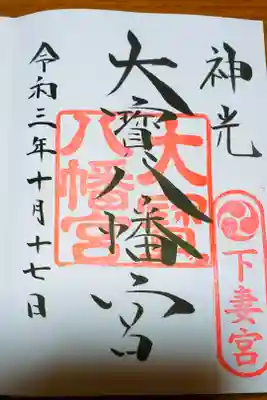 神光
大寳八幡宮
大寳八幡宮
下妻宮
令和三年十月十七日